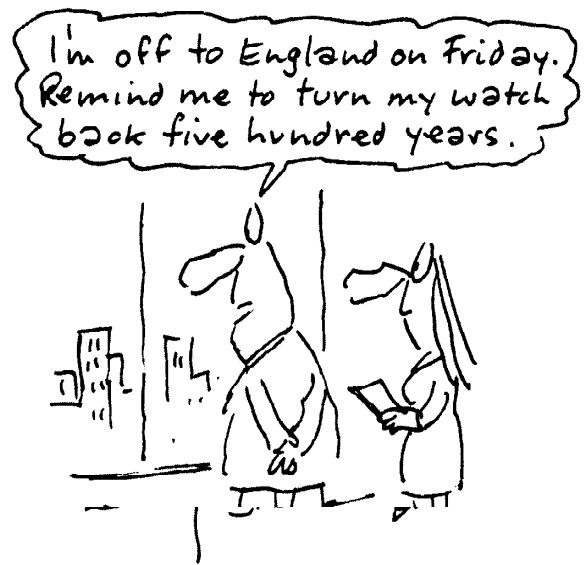 I'm off to England on Friday.
Remind me to turn my watch
back five hundred years.